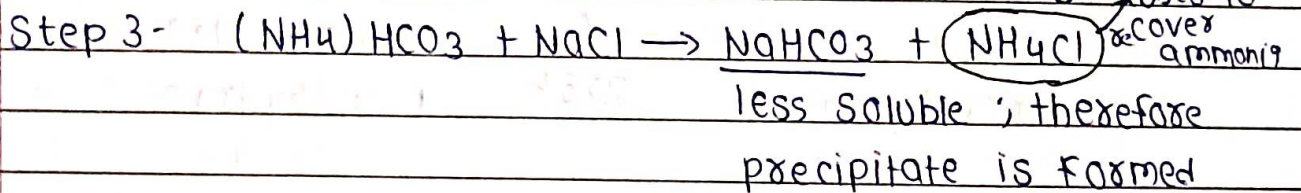 Step 3- (NH4) HCO3 + NaCl → NaHCO3 + NH4Cl recover
ammonia
less soluble ; therefore
precipitate is formed